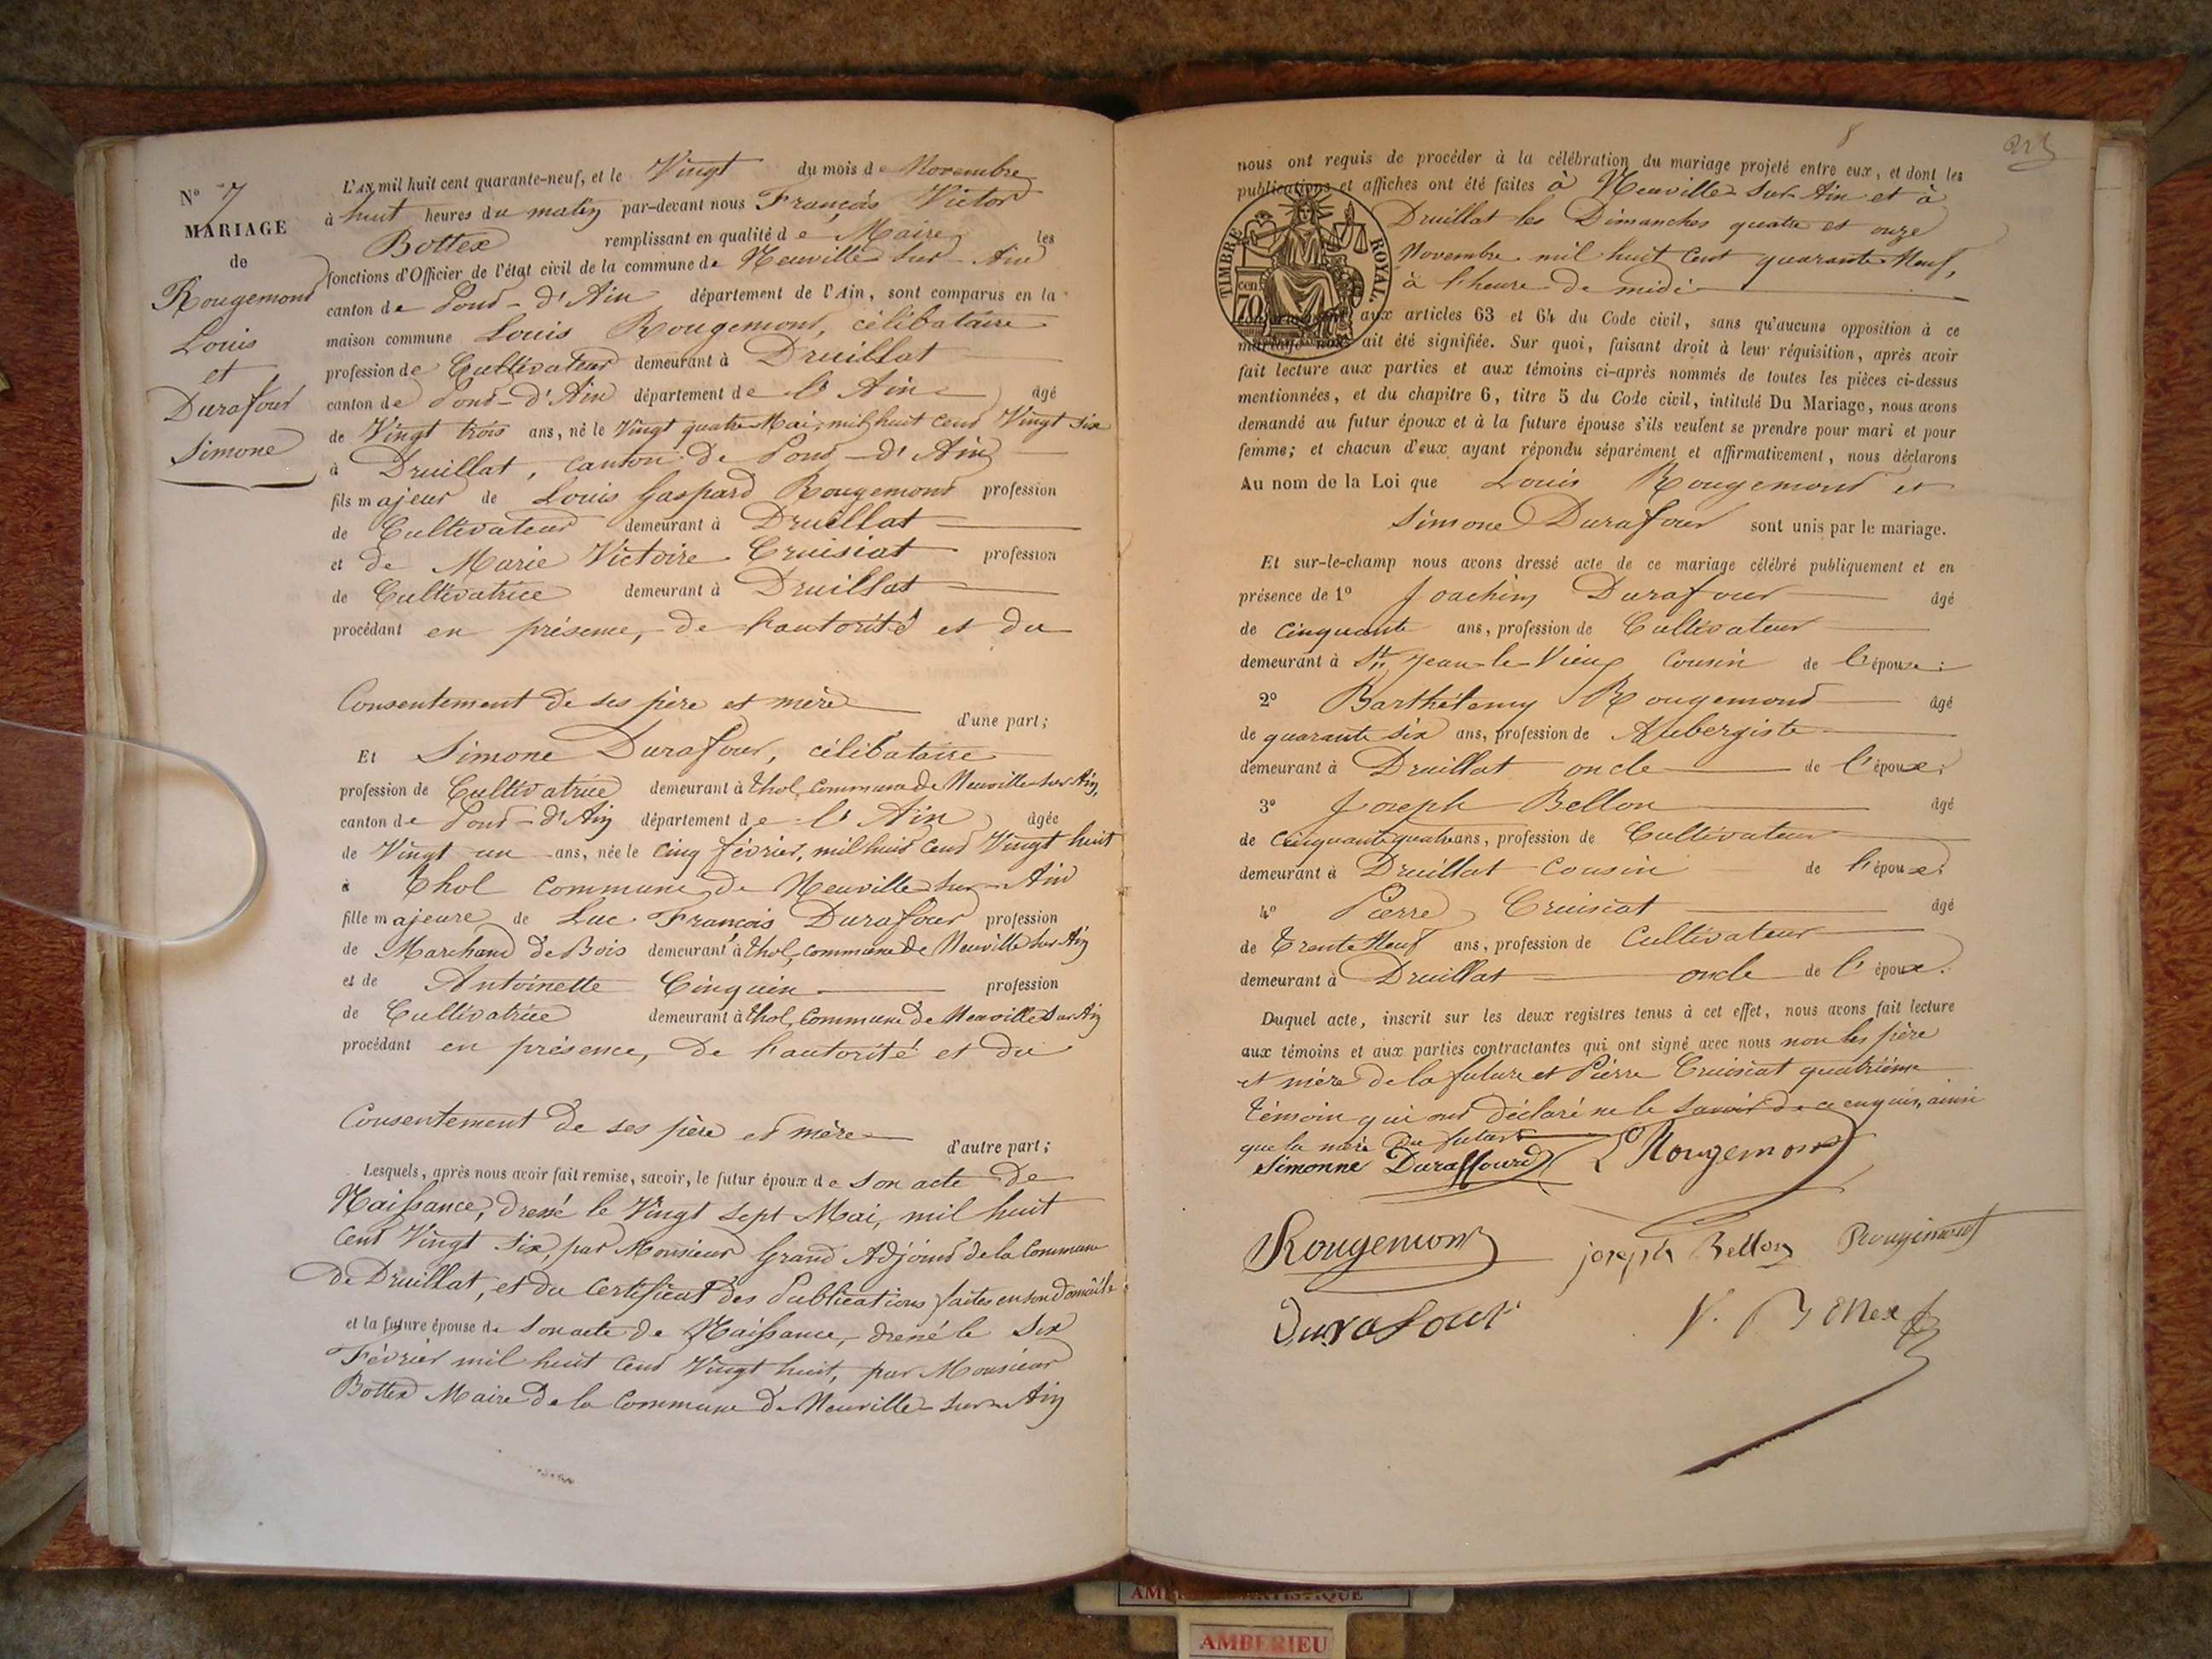 N° 7
MARIAGE
de
Rougemond
Louis
et
Durafour
Simone
L'AN mil huit cent quarante-neuf, et le Vingt du mois de Novembre
à huit heures du matin par-devant nous François Victor
Bottex remplissant en qualité de Maire les
fonctions d'Officier de l'état civil de la commune de Neuville sur Ain
canton de Pond-d'Ain département de l'Ain, sont comparus en la
maison commune Louis Rougemond, célibataire
profession de Cultivateur demeurant à Druillat
canton de Pond-d'Ain département de l'Ain âgé
de Vingt trois ans, né le Vingt quatre Mai, mil huit cend Vingt six
à Druillat, canton de Pond-d'Ain
fils majeur de Louis Gaspard Rougemond profession
de Cultivateur demeurant à Druillat
et de Marie Victoire Cruisiat profession
de Cultivatrice demeurant à Druillat
procédant en présence, de l'autorité et du
Consentement de ses père et mère d'une part;
Et Simone Durafour, célibataire
profession de Cultivatrice demeurant à Thol, commune de Neuville sur Ain,
canton de Pond-d'Ain département de l'Ain âgée
de Vingt un ans, née le cinq février, mil huid cend Vingt huit
à Thol commune de Neuville sur Ain
fille majeure de Luc François Durafour profession
de Marchand de Bois demeurant à Thol, commune de Neuville sur Ain
et de Antoinette Cinquin profession
de Cultivatrice demeurant à Thol, Commune de Neuville sur Ain
procédant en présence, de l'autorité et du
Consentement de ses père et mère d'autre part;
Lesquels, après nous avoir fait remise, savoir, le futur époux de son acte de
Naissance, dressé le Vingt sept Mai, mil huit
Cent Vingt six, par Monsieur Grand Adjoind de la Commune
de Druillat, et du Certificat des Publications faites en son domicile
et la future épouse de son acte de Naissance, dressé le six
Février mil huit cend Vingt huit, par Monsieur
Bottex Maire de la Commune de Neuville sur Ain
8
nous ont requis de procéder à la célébration du mariage projeté entre eux, et dont les
publications et affiches ont été faites à Neuville sur Ain et à
Druillat les Dimanches quatre et onze
Novembre mil huit Cent quarante Neuf,
à l'heure de midi
TIMBRE ROYAL.
cen
70
aux articles 63 et 64 du Code civil, sans qu'aucune opposition à ce
mariage nous ait été signifiée. Sur quoi, faisant droit à leur réquisition, après avoir
fait lecture aux parties et aux témoins ci-après nommés de toutes les pièces ci-dessus
mentionnées, et du chapitre 6, titre 5 du Code civil, intitulé Du Mariage, nous avons
demandé au futur époux et à la future épouse s'ils veulent se prendre pour mari et pour
femme; et chacun d'eux ayant répondu séparément et affirmativement, nous déclarons
Au nom de la Loi que Louis Rougemond et
Simone Durafour sont unis par le mariage.
Et sur-le-champ nous avons dressé acte de ce mariage célébré publiquement et en
présence de 1° Joachim Durafour âgé
de cinquante ans, profession de Cultivateur
demeurant à St Jean-le-Vieux Cousin de l'épouse;
2° Barthélemy Rougemond âgé
de quarante six ans, profession de Aubergiste
demeurant à Druillat oncle de l'époux;
3° Joseph Bellon âgé
de cinquante quatre ans, profession de Cultivateur
demeurant à Druillat Cousin de l'époux;
4° Pierre Cruisiat âgé
de Trente Neuf ans, profession de Cultivateur
demeurant à Druillat oncle de l'époux.
Duquel acte, inscrit sur les deux registres tenus à cet effet, nous avons fait lecture
aux témoins et aux parties contractantes qui ont signé avec nous non les père
et mère de la future et Pierre Cruisiat quatrième
témoin qui ond déclaré ne le savoir de ce enquis, ainsi
que la mère du futur
Simonne Duraffourd L Rougemont
Rougemont joseph Bellon Rougemont
Durafour V. Bottex
AMBERIEU